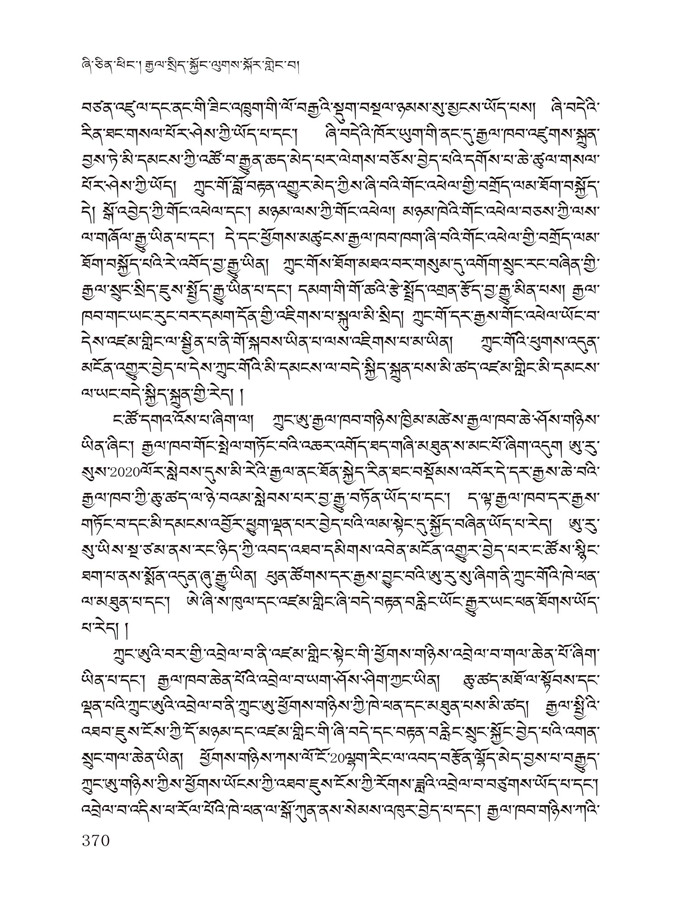 ཞི་ཅིན་ཕིང་། རྒྱལ་སྲིད་སྐྱོང་ལུགས་སྐོར་གླེང་བ།
བཙན་འཛུལ་དང་ནང་གི་ཟིང་འཁྲུག་གི་ལོ་བརྒྱའི་སྡུག་བསྔལ་ཉམས་སུ་མྱངས་ཡོད་པས། ཞི་བདེའི་
རིན་ཐང་གསལ་པོར་ཤེས་ཀྱི་ཡོད་པ་དང་། ཞི་བདེའི་ཁོར་ཡུག་གི་ནང་དུ་རྒྱལ་ཁབ་འཛུགས་སྐྲུན་
བྱས་ཏེ་མི་དམངས་ཀྱི་འཚོ་བ་རྒྱུན་ཆད་མེད་པར་ལེགས་བཅོས་བྱེད་པའི་དགོས་པ་ཆེ་ཚུལ་གསལ་
པོར་ཤེས་ཀྱི་ཡོད། ཀྲུང་གོ་བློ་བརྟན་འགྱུར་མེད་ཀྱིས་ཞི་བའི་གོང་འཕེལ་གྱི་བགྲོད་ལམ་ཐོག་བསྐྱོད་
དེ། སྒོ་འབྱེད་ཀྱི་གོང་འཕེལ་དང་། མཉམ་ལས་ཀྱི་གོང་འཕེལ། མཉམ་ཁེའི་གོང་འཕེལ་བཅས་ཀྱི་ལས་
ལ་གཞོལ་རྒྱུ་ཡིན་པ་དང་། དེ་དང་ཕྱོགས་མཚུངས་རྒྱལ་ཁབ་ཁག་ཞི་བའི་གོང་འཕེལ་གྱི་བགྲོད་ལམ་
ཐོག་བསྐྱོད་པའི་རེ་འབོད་བྱ་རྒྱུ་ཡིན། ཀྲུང་གོས་ཐོག་མཐའ་བར་གསུམ་དུ་འགོག་སྲུང་རང་བཞིན་གྱི་
རྒྱལ་སྲུང་སྲིད་ཇུས་སྤྱོད་རྒྱུ་ཡིན་པ་དང་། དམག་གི་གོ་ཆའི་རྩེ་སྤྲོད་འགྲན་རྩོད་བྱ་རྒྱུ་མིན་པས། རྒྱལ་
ཁབ་གང་ཡང་རུང་བར་དམག་དོན་གྱི་འཇིགས་པ་སྐུལ་མི་སྲིད། ཀྲུང་གོ་དར་རྒྱས་གོང་འཕེལ་ཡོང་བ་
དེས་འཛམ་གླིང་ལ་སྦྱིན་པ་ནི་གོ་སྐབས་ཡིན་པ་ལས་འཇིགས་པ་མ་ཡིན། ཀྲུང་གོའི་ཕུགས་འདུན་
མངོན་འགྱུར་བྱེད་པ་དེས་ཀྲུང་གོའི་མི་དམངས་ལ་བདེ་སྐྱིད་སྐྲུན་པས་མི་ཚད་འཛམ་གླིང་མི་དམངས་
ལ་ཡང་བདེ་སྐྱིད་སྐྲུན་གྱི་རེད། །
ང་ཚོ་དགའ་འོས་པ་ཞིག་ལ། ཀྲུང་ཨུ་རྒྱལ་ཁབ་གཉིས་ཁྱིམ་མཚེས་རྒྱལ་ཁབ་ཆེ་ཤོས་གཉིས་
ཡིན་ཞིང་། རྒྱལ་ཁབ་གོང་སྤེལ་གཏོང་བའི་འཆར་འགོད་ཐད་གཞི་མཐུན་ས་མང་པོ་ཞིག་འདུག ཨུ་རུ་
སུས་2020ལོར་སླེབས་དུས་མི་རེའི་རྒྱལ་ནང་ཐོན་སྐྱེད་རིན་ཐང་བསྡོམས་འབོར་དེ་དར་རྒྱས་ཆེ་བའི་
རྒྱལ་ཁབ་ཀྱི་ཆུ་ཚད་ལ་ཉེ་བའམ་སླེབས་པར་བྱ་རྒྱུ་བཏོན་ཡོད་པ་དང་། ད་ལྟ་རྒྱལ་ཁབ་དར་རྒྱས་
གཏོང་བ་དང་མི་དམངས་འབྱོར་ཕྱུག་ལྡན་པར་བྱེད་པའི་ལམ་སྟེང་དུ་སྐྱོད་བཞིན་ཡོད་པ་རེད། ཨུ་རུ་
སུ་ཡིས་སྔ་ཙམ་ནས་རང་ཉིད་ཀྱི་འབད་འཐབ་དམིགས་འབེན་མངོན་འགྱུར་བྱེད་པར་ང་ཚོས་སྙིང་
ཐག་པ་ནས་སྨོན་འདུན་ཞུ་རྒྱུ་ཡིན། ཕུན་ཚོགས་དར་རྒྱས་བྱུང་བའི་ཨུ་རུ་སུ་ཞིག་ནི་ཀྲུང་གོའི་ཁེ་ཕན་
ལ་མཐུན་པ་དང་། ཨེ་ཞི་ས་ཁུལ་དང་འཛམ་གླིང་ཞི་བདེ་བརྟན་བརླིང་ཡོང་རྒྱུར་ཡང་ཕན་ཐོགས་ཡོད་
པ་རེད། །
ཀྲུང་ཨུའི་བར་གྱི་འབྲེལ་བ་ནི་འཛམ་གླིང་སྟེང་གི་ཕྱོགས་གཉིས་འབྲེལ་བ་གལ་ཆེན་པོ་ཞིག་
ཡིན་པ་དང་། རྒྱལ་ཁབ་ཆེན་པོའི་འབྲེལ་བ་ཡག་ཤོས་ཤིག་ཀྱང་ཡིན། ཆུ་ཚད་མཐོ་ལ་སྟོབས་དང་
ལྡན་པའི་ཀྲུང་ཨུའི་འབྲེལ་བ་ནི་ཀྲུང་ཨུ་ཕྱོགས་གཉིས་ཀྱི་ཁེ་ཕན་དང་མཐུན་པས་མི་ཚད། རྒྱལ་སྤྱིའི་
འཐབ་ཇུས་ངོས་ཀྱི་དོ་མཉམ་དང་འཛམ་གླིང་གི་ཞི་བདེ་དང་བརྟན་བརླིང་སྲུང་སྐྱོང་བྱེད་པའི་འགན་
སྲུང་གལ་ཆེན་ཡིན། ཕྱོགས་གཉིས་ཀས་ལོ་ངོ་20ལྷག་རིང་ལ་འབད་བརྩོན་ལྷོད་མེད་བྱས་པ་བརྒྱུད་
ཀྲུང་ཨུ་གཉིས་ཀྱིས་ཕྱོགས་ཡོངས་ཀྱི་འཐབ་ཇུས་ངོས་ཀྱི་རོགས་ཟླའི་འབྲེལ་བ་བཙུགས་ཡོད་པ་དང་།
འབྲེལ་བ་འདིས་ཕ་རོལ་པོའི་ཁེ་ཕན་ལ་སྒོ་ཀུན་ནས་སེམས་འཁུར་བྱེད་པ་དང་། རྒྱལ་ཁབ་གཉིས་ཀའི་
370